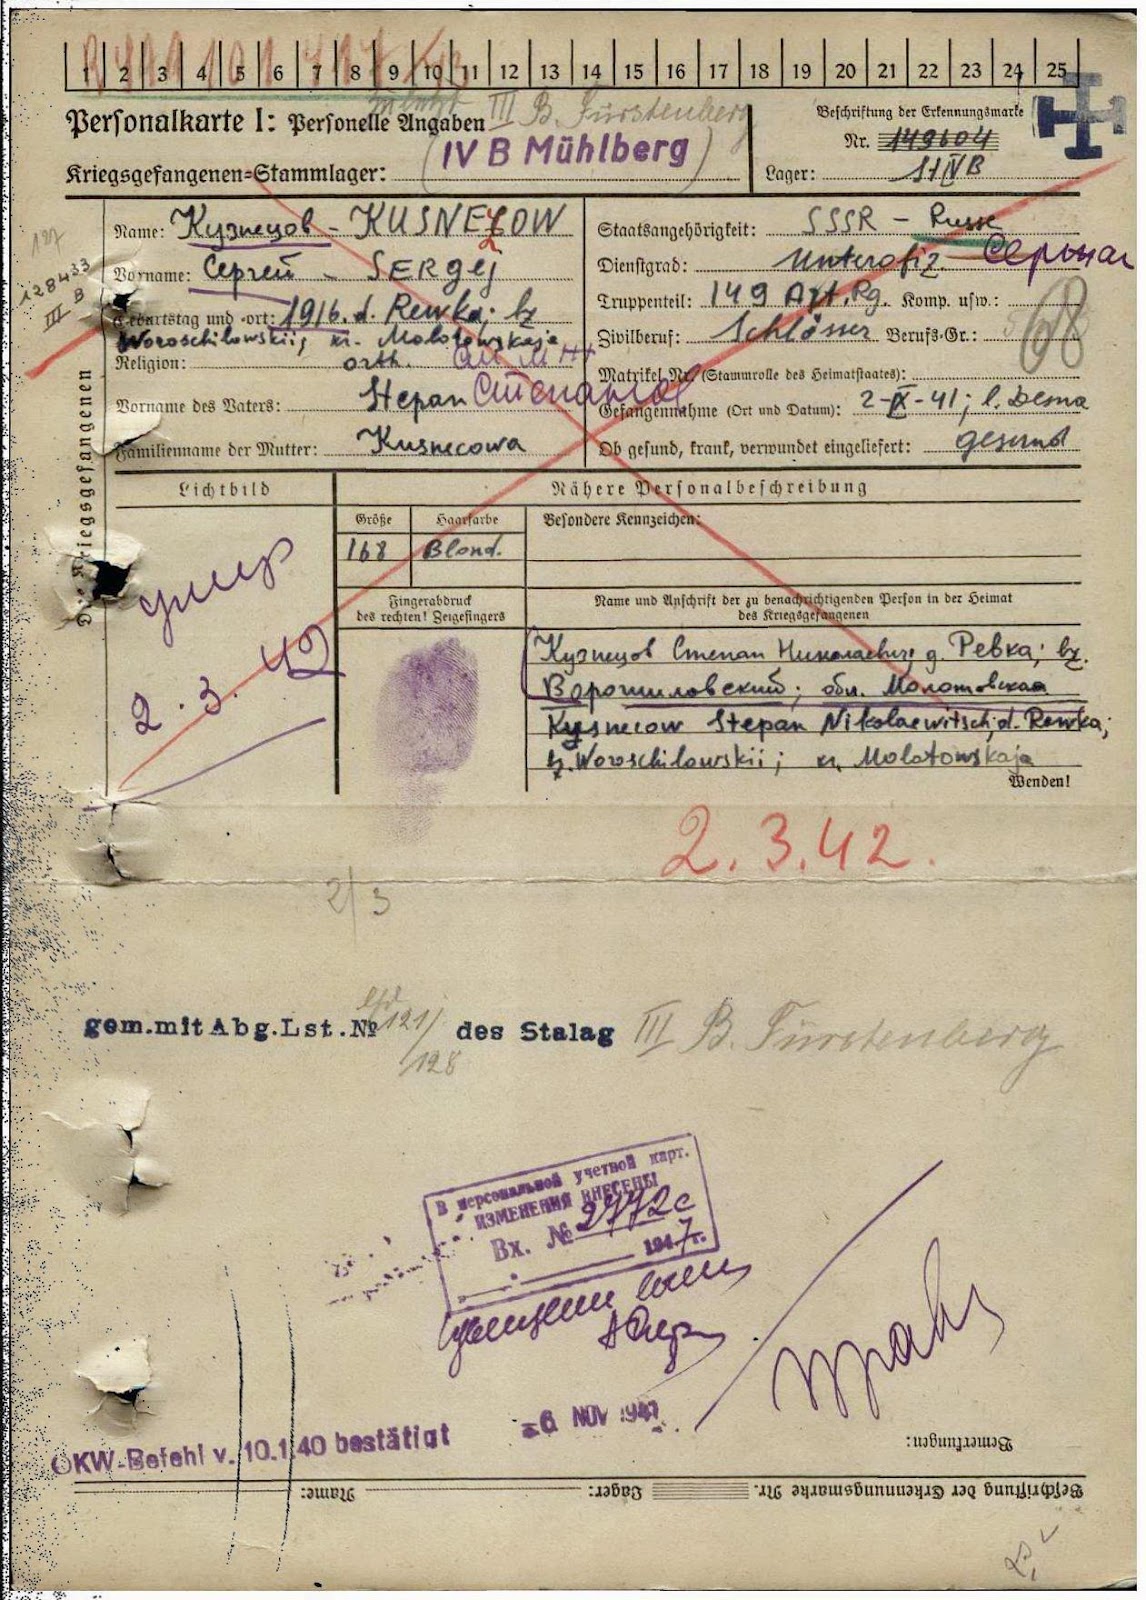 1 2 3 4 5 6 7 8 9 10 11 12 13 14 15 16 17 18 19 20 21 22 23 24 25
III B. Fürstenberg
Personalkarte I: Personelle Angaben
(IV B Mühlberg)
Kriegsgefangenen=Stammlager:
Beschriftung der Erkennungsmarke
Nr. 149604
Lager: St IV B
127
128433
III B
Des Kriegsgefangenen
Name: Кузнецов - KUSNEZOW
Vorname: Сергей - SERGEJ
Geburtstag und -ort: 1916. d. Rewka; bz
Woroschilowskii; kr. Molotowskaja
Religion: orth.
Vorname des Vaters: Stepan Степанов
Familienname der Mutter: Kusnecowa
Staatsangehörigkeit: SSSR - Russe
Dienstgrad: Unterofiz. Сержант
Truppenteil: 149 Art. Rg. Komp. usw.:
Zivilberuf: Schlosser Berufs-Gr.:
68
Matrikel Nr. (Stammrolle des Heimatstaates):
Gefangennahme (Ort und Datum): 2-IX-41; l. Dema
Ob gesund, krank, verwundet eingeliefert: gesund
Lichtbild
Nähere Personalbeschreibung
Größe Haarfarbe Besondere Kennzeichen:
168 Blond.
умер
2.3.42
Fingerabdruck
des rechten! Zeigefingers
Name und Anschrift der zu benachrichtigenden Person in der Heimat
des Kriegsgefangenen
Кузнецов Степан Николаевич; д. Ревка; bz.
Ворошиловский; обл. Молотовская
Kusnecow Stepan Nikolaewitsch, d. Rewka;
bz. Woroschilowskii; kr. Molotowskaja
Wenden!
2.3.42.
2/3
gem.mit Abg.Lst.№ 121/128 des Stalag III B. Fürstenberg
В персональной учетной карт.
ИЗМЕНЕНИЯ ВНЕСЕНЫ
Вх. № 2772с
1947 г.
6 NOV 1947
OKW-Befehl v. 10.1.40 bestätigt
Bemerkungen:
Beschriftung der Erkennungsmarke Nr. Lager: Name: